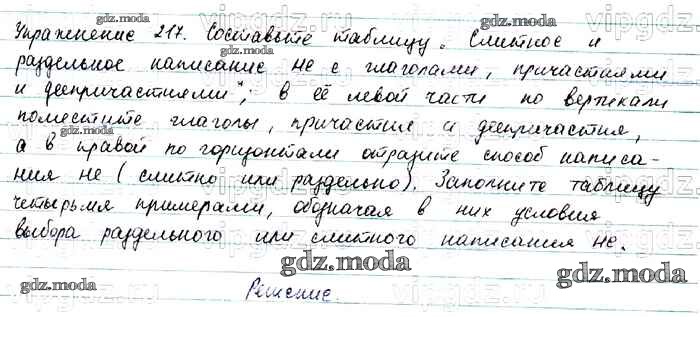 Упражнение 217. Составьте таблицу „Слитное и
раздельное написание не с глаголами, причастиями
и деепричастиями", в её левой части по вертикали
поместите глаголы, причастия и деепричастия,
а в правой по горизонтали отразите способ написа-
ния не (слитно или раздельно). Заполните таблицу
четырьмя примерами, обозначая в них условия
выбора раздельного или слитного написания не.
gdz.moda
gdz.moda
Решение.